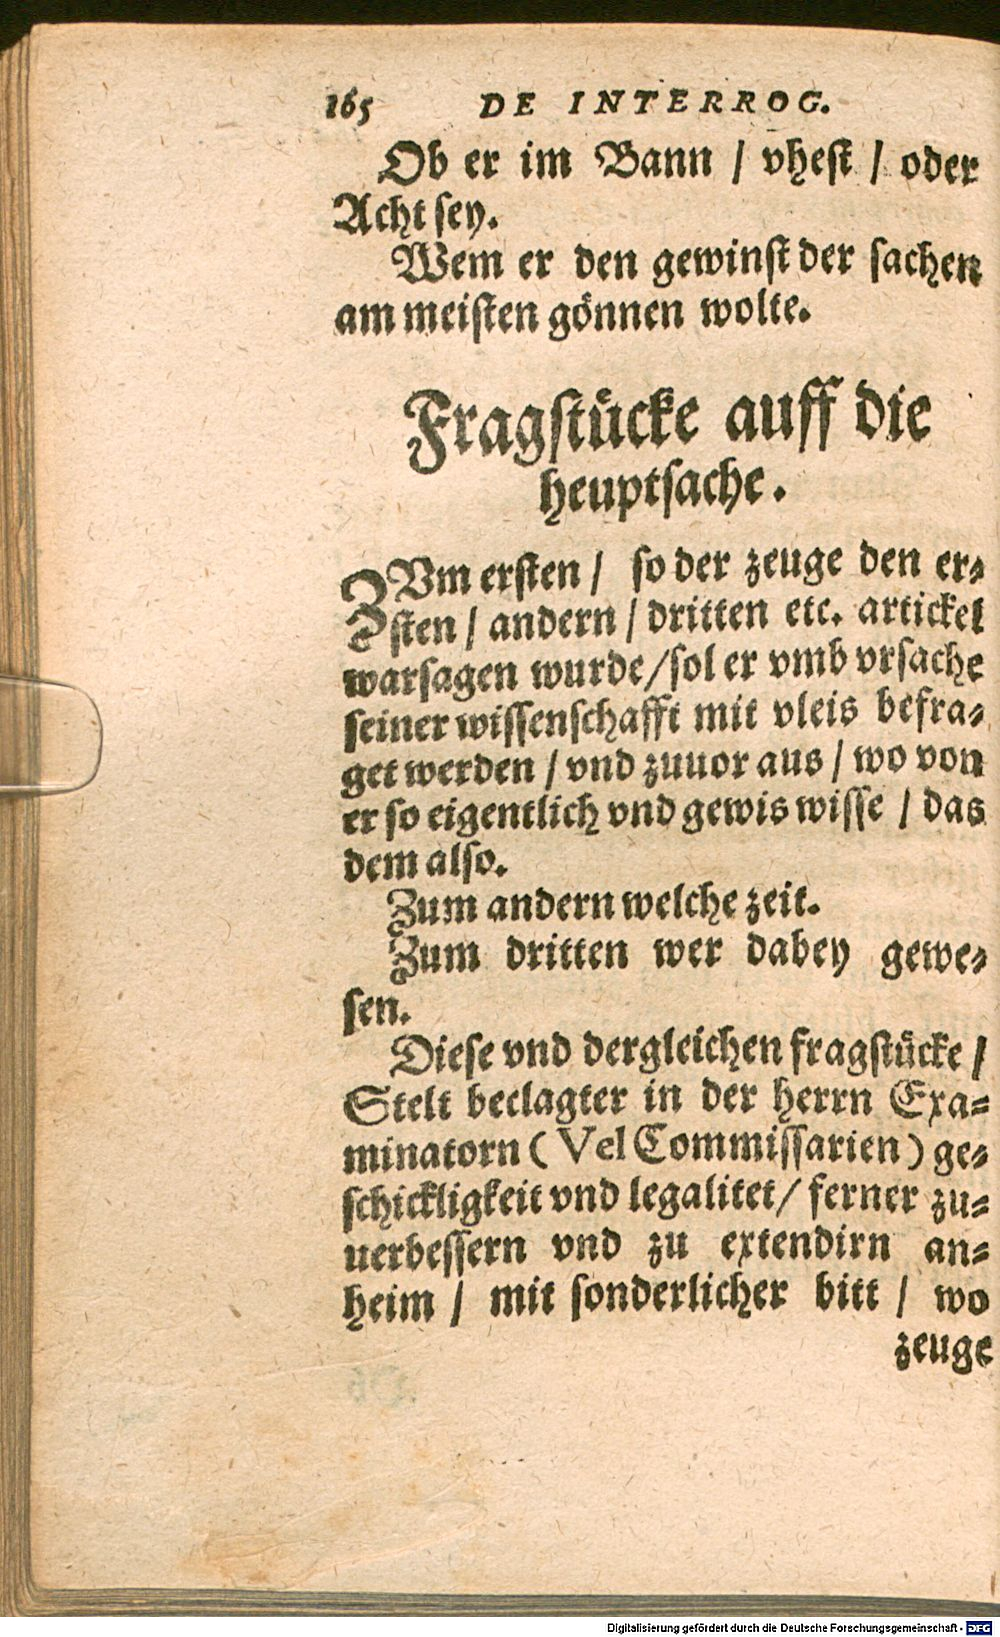 165 DE INTERROG.
Ob er im Bann / vhest / oder
Acht sey.
Wem er den gewinst der sachen
am meisten gönnen wolte.
Fragstücke auff die
heuptsache.
ZVm ersten / so der zeuge den er-
sten / andern / dritten etc. artickel
warsagen wurde / sol er vmb vrsache
seiner wissenschafft mit vleis befra-
get werden / vnd zuuor aus / wo von
er so eigentlich vnd gewis wisse / das
dem also.
Zum andern welche zeit.
Zum dritten wer dabey gewe-
sen.
Diese vnd dergleichen fragstücke /
Stelt beclagter in der herrn Exa-
minatorn ( Vel Commissarien ) ge-
schickligkeit vnd legalitet / ferner zu-
uerbessern vnd zu extendirn an-
heim / mit sonderlicher bitt / wo
zeuge
Digitalisierung gefördert durch die Deutsche Forschungsgemeinschaft - DFG